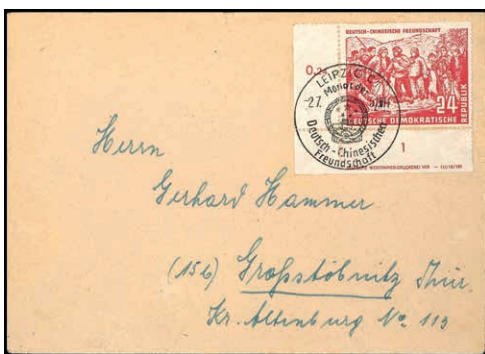 DEUTSCH-CHINESISCHE FREUNDSCHAFT
24
DEUTSCHE DEMOKRATISCHE
REPUBLIK
LEIPZIG C
Monat der
27.
Deutsch-Chinesischen
Freundschaft
1
Herrn
Gerhard Hammer
(15b) Großstöbnitz Thür.
Kr. Altenburg No. 113